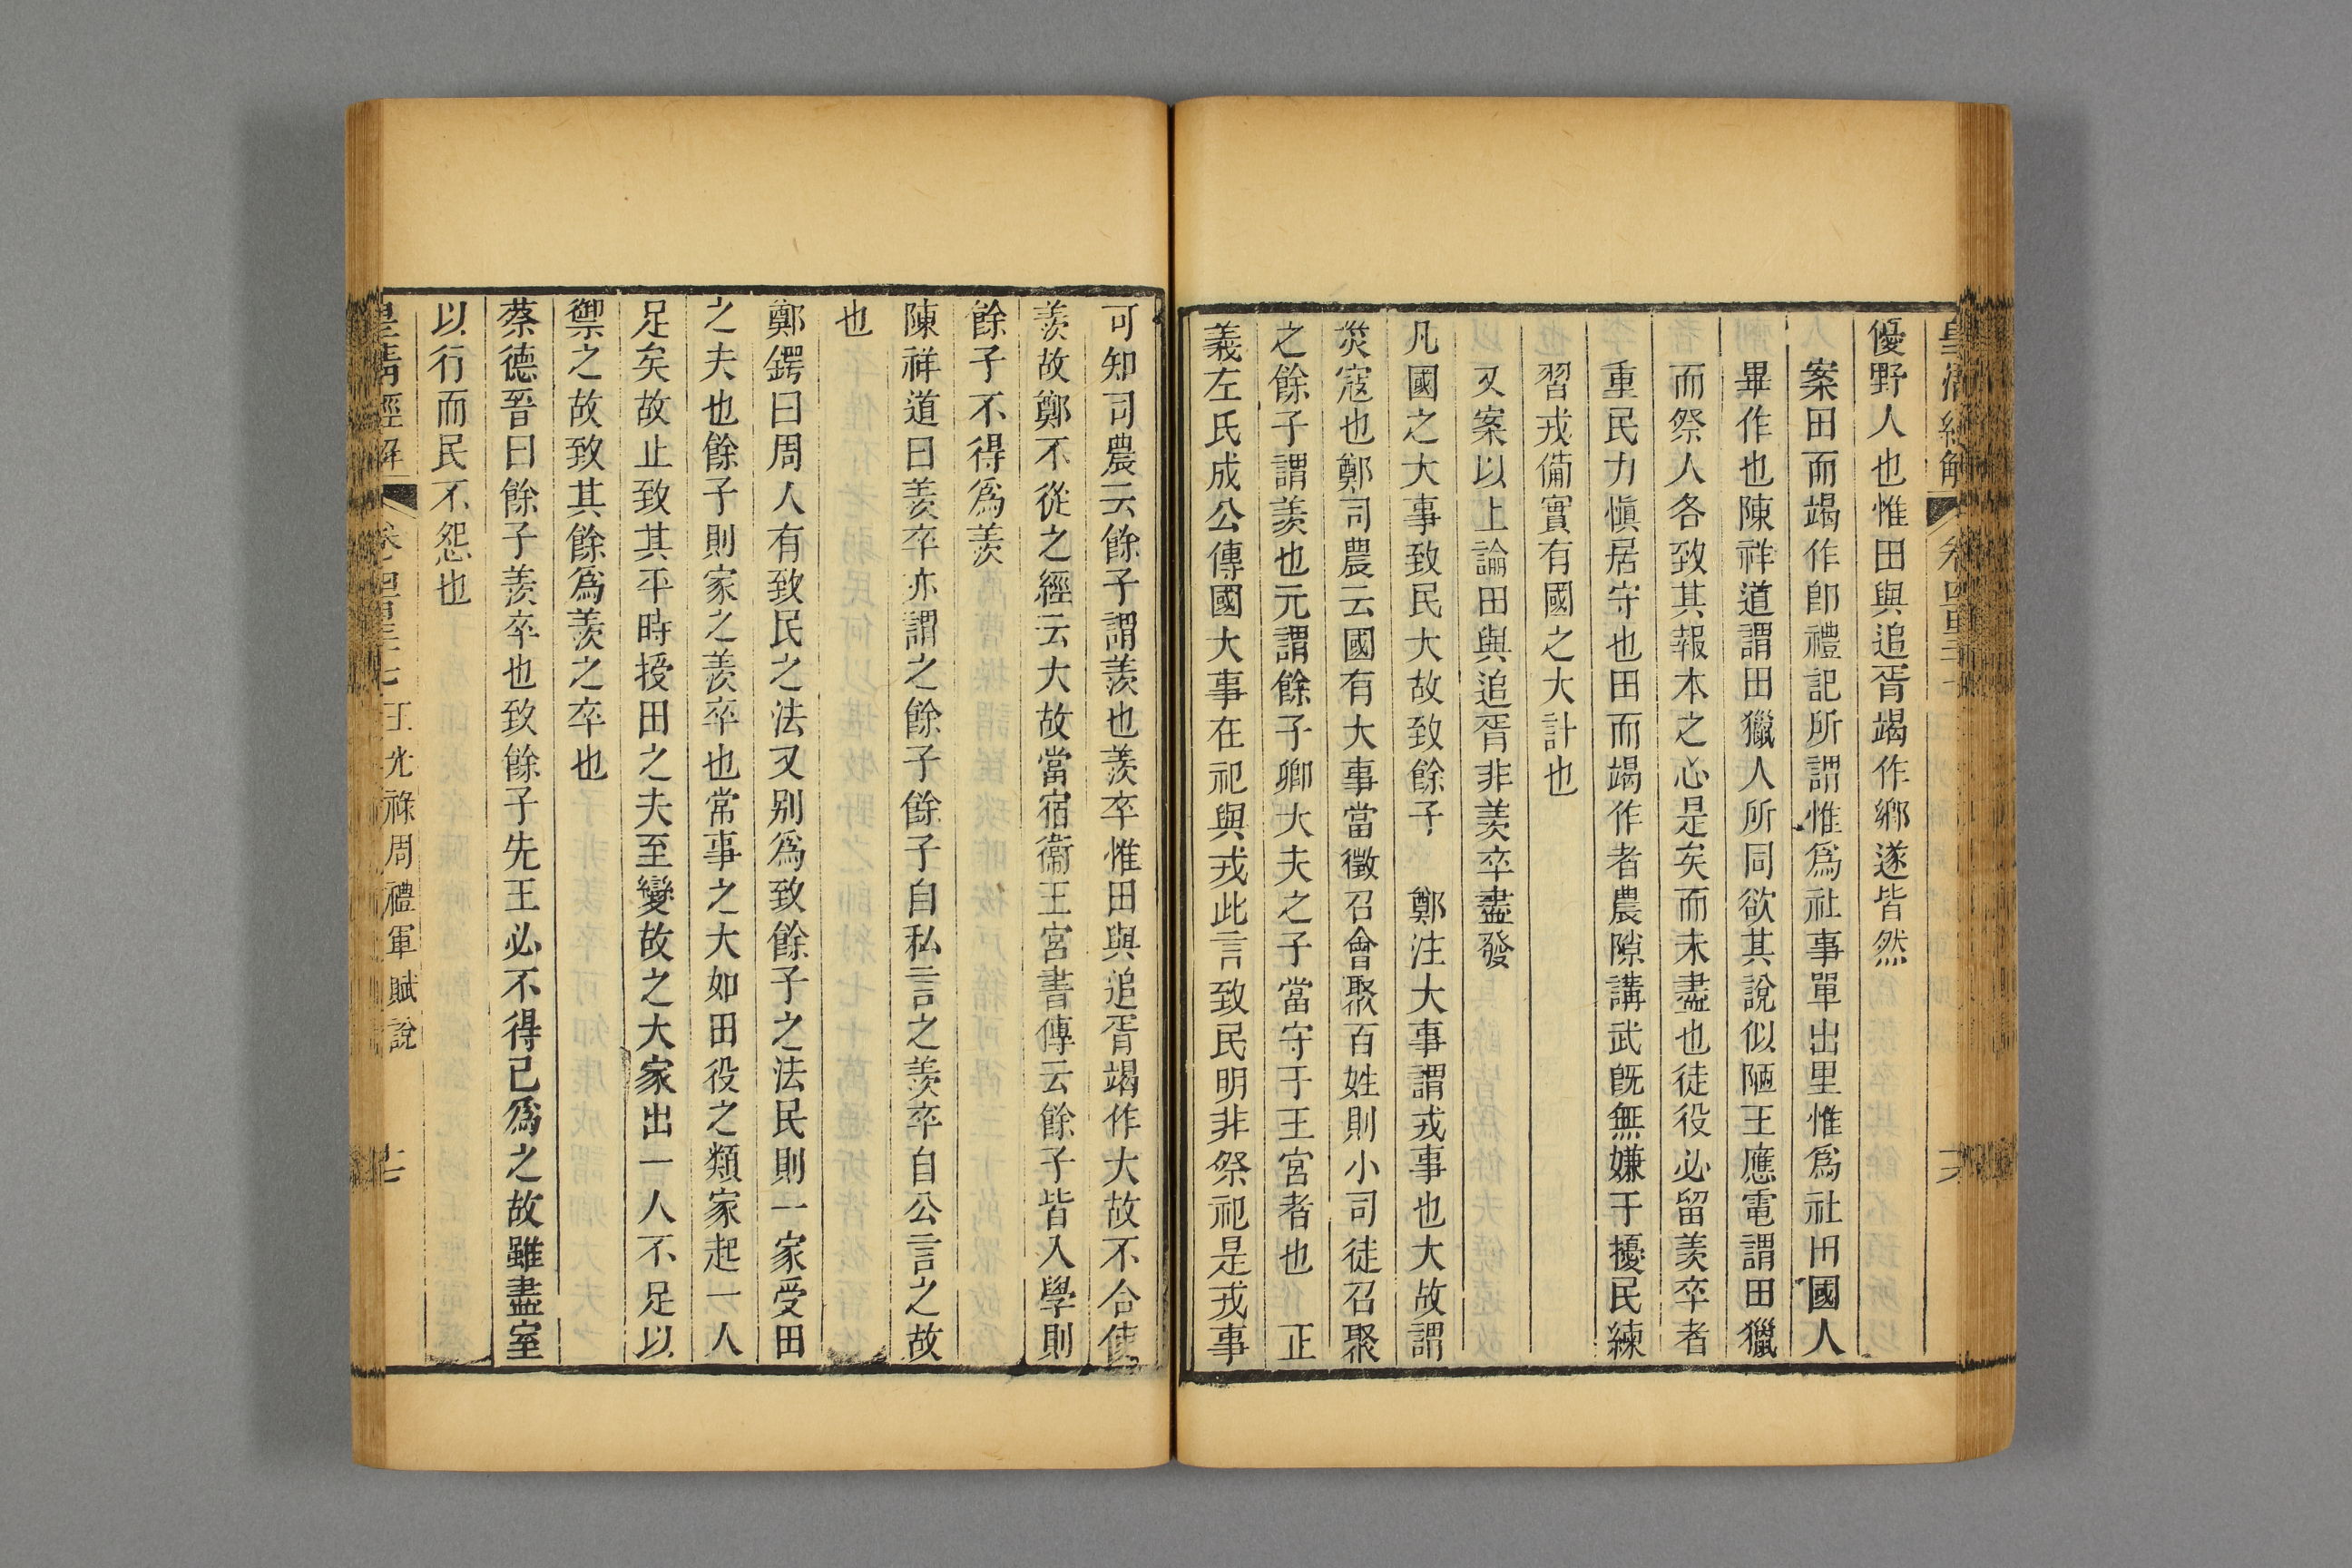 皇清經解
優野人也惟田與追胥竭作鄉遂皆然
案田而竭作卽禮記所謂惟爲社事單出里惟爲社田國人
畢作也陳祥道謂田獵人所同欲其說似陋王應電謂田獵
而祭人各致其報本之心是矣而未盡也徒役必留羨卒者
重民力愼居守也田而竭作者農隙講武旣無嫌于擾民練
習戎備實有國之大計也
又案以上論田與追胥非羨卒盡發
凡國之大事致民大故致餘子　鄭注大事謂戎事也大故謂
災寇也鄭司農云國有大事當徵召會聚百姓則小司徒召聚
之餘子謂羨也元謂餘子卿大夫之子當守于王宮者也　正
義左氏成公傳國大事在祀與戎此言致民明非祭祀是戎事
可知司農云餘子謂羨也羨卒惟田與追胥竭作大故不合使
羨故鄭不從之經云大故當宿衞王宮書傳云餘子皆入學則
餘子不得爲羨
陳祥道曰羨卒亦謂之餘子餘子自私言之羨卒自公言之故
也
鄭鍔曰周人有致民之法又别爲致餘子之法民則一家受田
之夫也餘子則家之羨卒也常事之大如田役之類家起一人
足矣故止致其平時授田之夫至變故之大家出一人不足以
禦之故致其餘爲羨之卒也
蔡德晉曰餘子羨卒也致餘子先王必不得已爲之故雖盡室
以行而民不怨也
皇清經解 王光祿周禮軍賦說